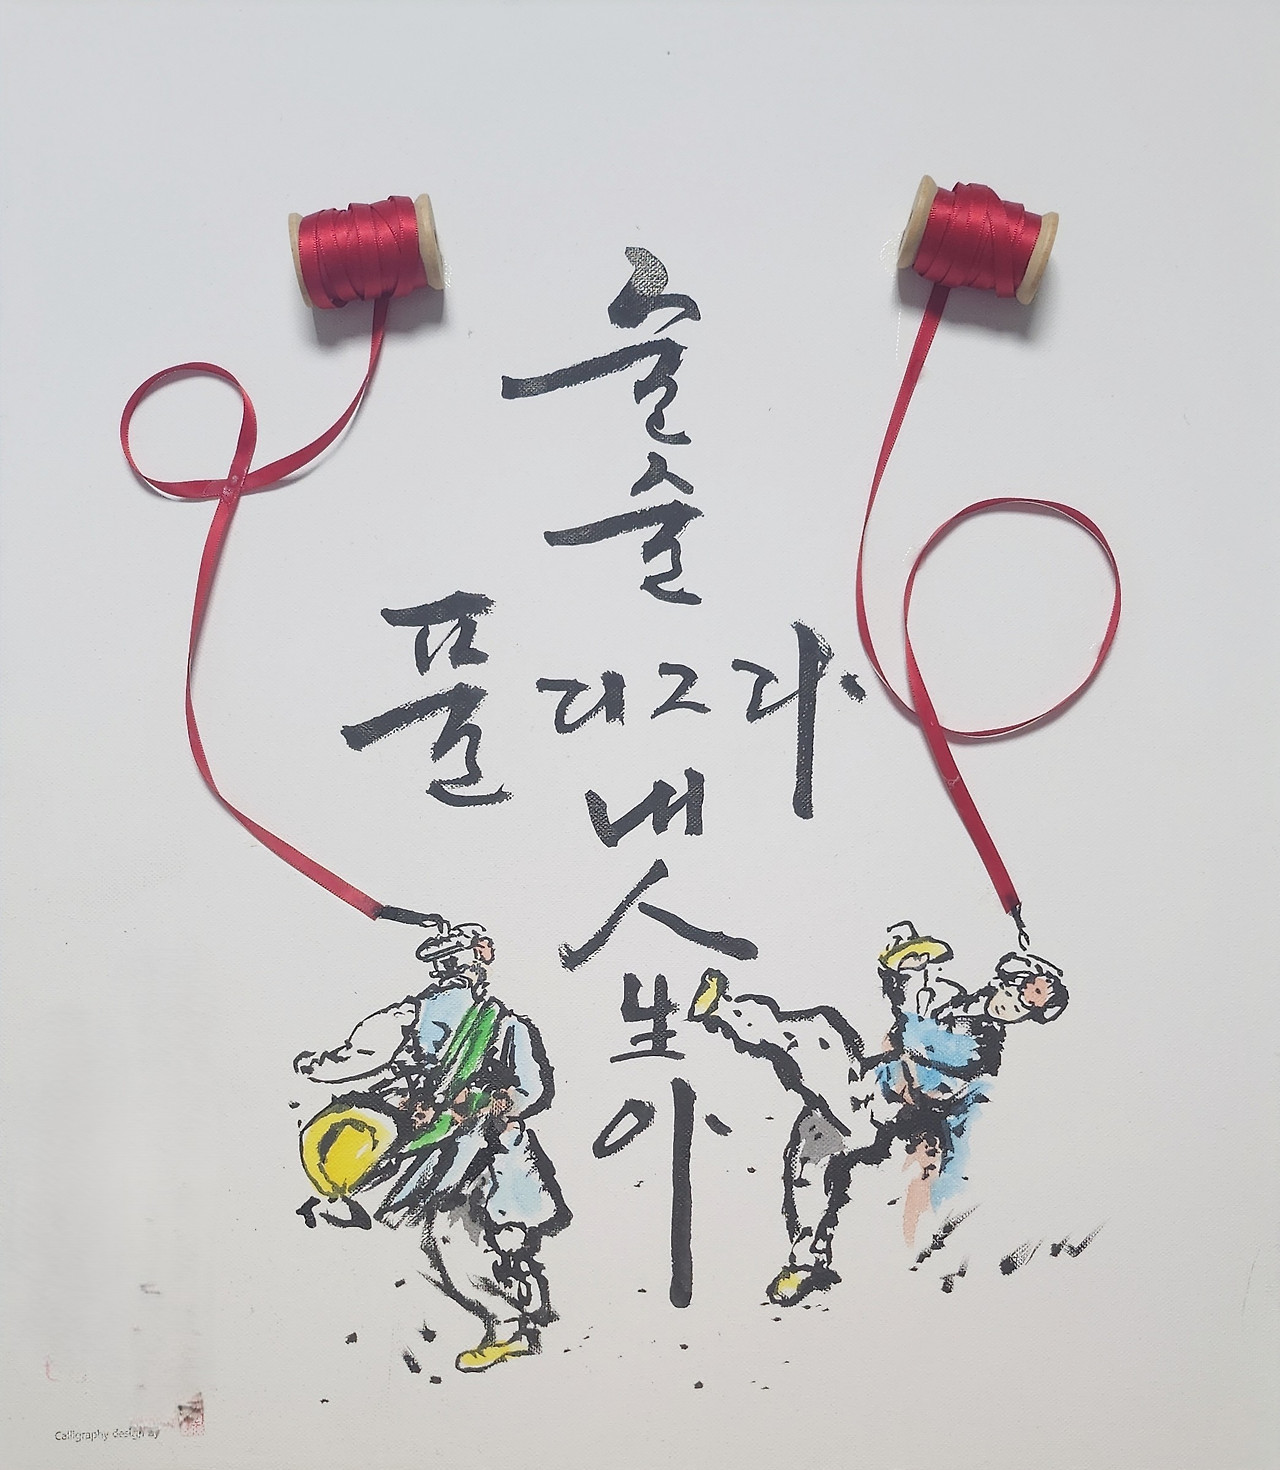 술
술
풀리그라
내
人
生
아
Calligraphy design by